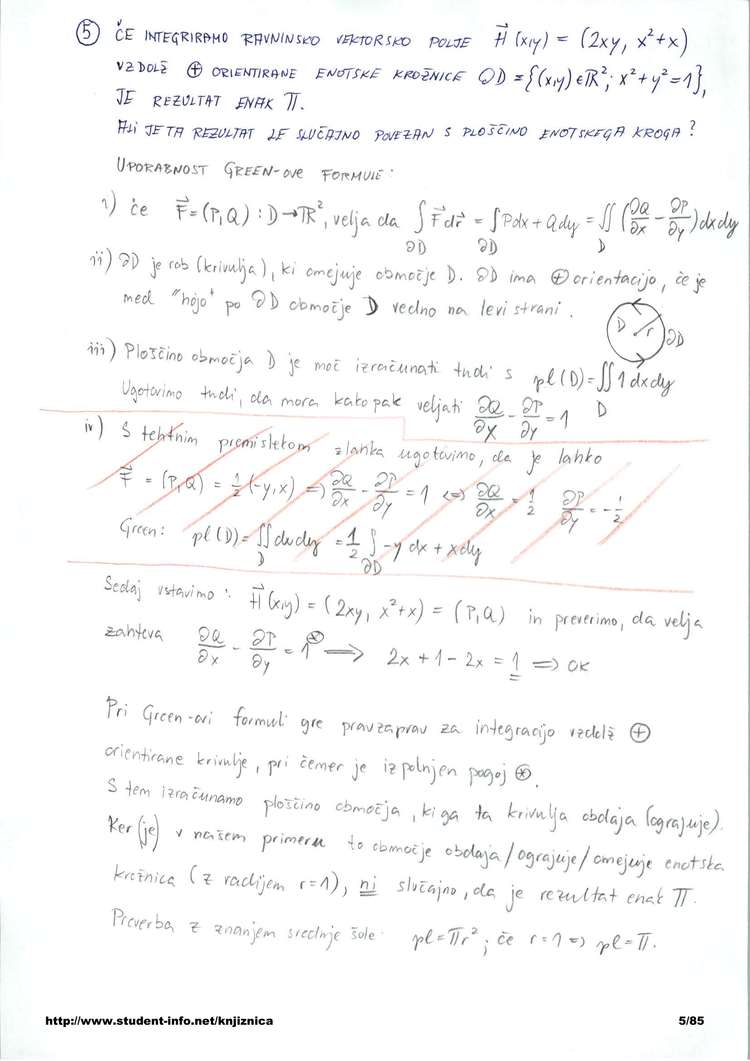 ⑤ ČE INTEGRIRAMO RAVNINSKO VEKTORSKO POLJE H⃗(x,y) = (2xy, x²+x)
VZDOLŽ ⊕ ORIENTIRANE ENOTSKE KROŽNICE ∂D = {(x,y) ∈ ℝ²; x²+y²=1},
JE REZULTAT ENAK π.
ALI JE TA REZULTAT LE SLUČAJNO POVEZAN S PLOŠČINO ENOTSKEGA KROGA?
UPORABNOST GREEN-ove FORMULE:
i) če F⃗ = (P,Q) : D → ℝ², velja da ∫_∂D F⃗ dr⃗ = ∫_∂D Pdx + Qdy = ∬_D (∂Q/∂x - ∂P/∂y) dxdy
ii) ∂D je rob (krivulja), ki omejuje območje D. ∂D ima ⊕ orientacijo, če je
med "hojo" po ∂D območje D vedno na levi strani.
D r ∂D
iii) Ploščino območja D je moč izračunati tudi s pl(D) = ∬_D 1 dxdy
Ugotovimo tudi, da mora kakopak veljati ∂Q/∂x - ∂P/∂y = 1
iv) S tehtnim premislekom zlahka ugotovimo, da je lahko
F⃗ = (P,Q) = 1/2 (-y,x) ⇒ ∂Q/∂x - ∂P/∂y = 1 ⇔ ∂Q/∂x = 1/2 ∂P/∂y = -1/2
Green: pl(D) = ∬_D dxdy = 1/2 ∫_∂D -y dx + xdy
Sedaj vstavimo: H⃗(x,y) = (2xy, x²+x) = (P,Q) in preverimo, da velja
zahteva ∂Q/∂x - ∂P/∂y = 1 ⊛ ⟹ 2x + 1 - 2x = 1 ⟹ OK
Pri Green-ovi formuli gre pravzaprav za integracijo vzdolž ⊕
orientirane krivulje, pri čemer je izpolnjen pogoj ⊛.
S tem izračunamo ploščino območja, ki ga ta krivulja obdaja (ograjuje).
Ker (je) v našem primeru to območje obdaja/ograjuje/omejuje enotska
krožnica (z radijem r=1), ni slučajno, da je rezultat enak π.
Preverba z znanjem srednje šole: pl = πr²; če r=1 ⇒ pl = π.
http://www.student-info.net/knjiznica 5/85